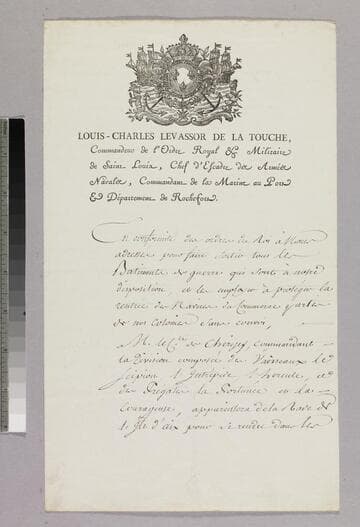 LOUIS-CHARLES LEVASSOR DE LA TOUCHE,
Commandeur de l'Ordre Royal & Militaire
de Saint Louis, Chef d'Escadre des Armées
Navales, Commandant de la Marine au Port
& Département de Rochefort.
En conformité des ordres du Roi à Nous
adressés pour faire sortir tous les
Batiments de guerre qui sont à notre
disposition, et les employer à proteger la
rentrée des Navires du Commerce partis
de nos colonies sans convoi,
M. le de Cherisey, Commandant
la Division composée des Vaisseaux le
Scipion l'Intrépide l'hercule, et
des Fregates la Fortunée et la
Courageuse, appareillera de la Rade de
l'Isle d'aix pour se rendre dans les